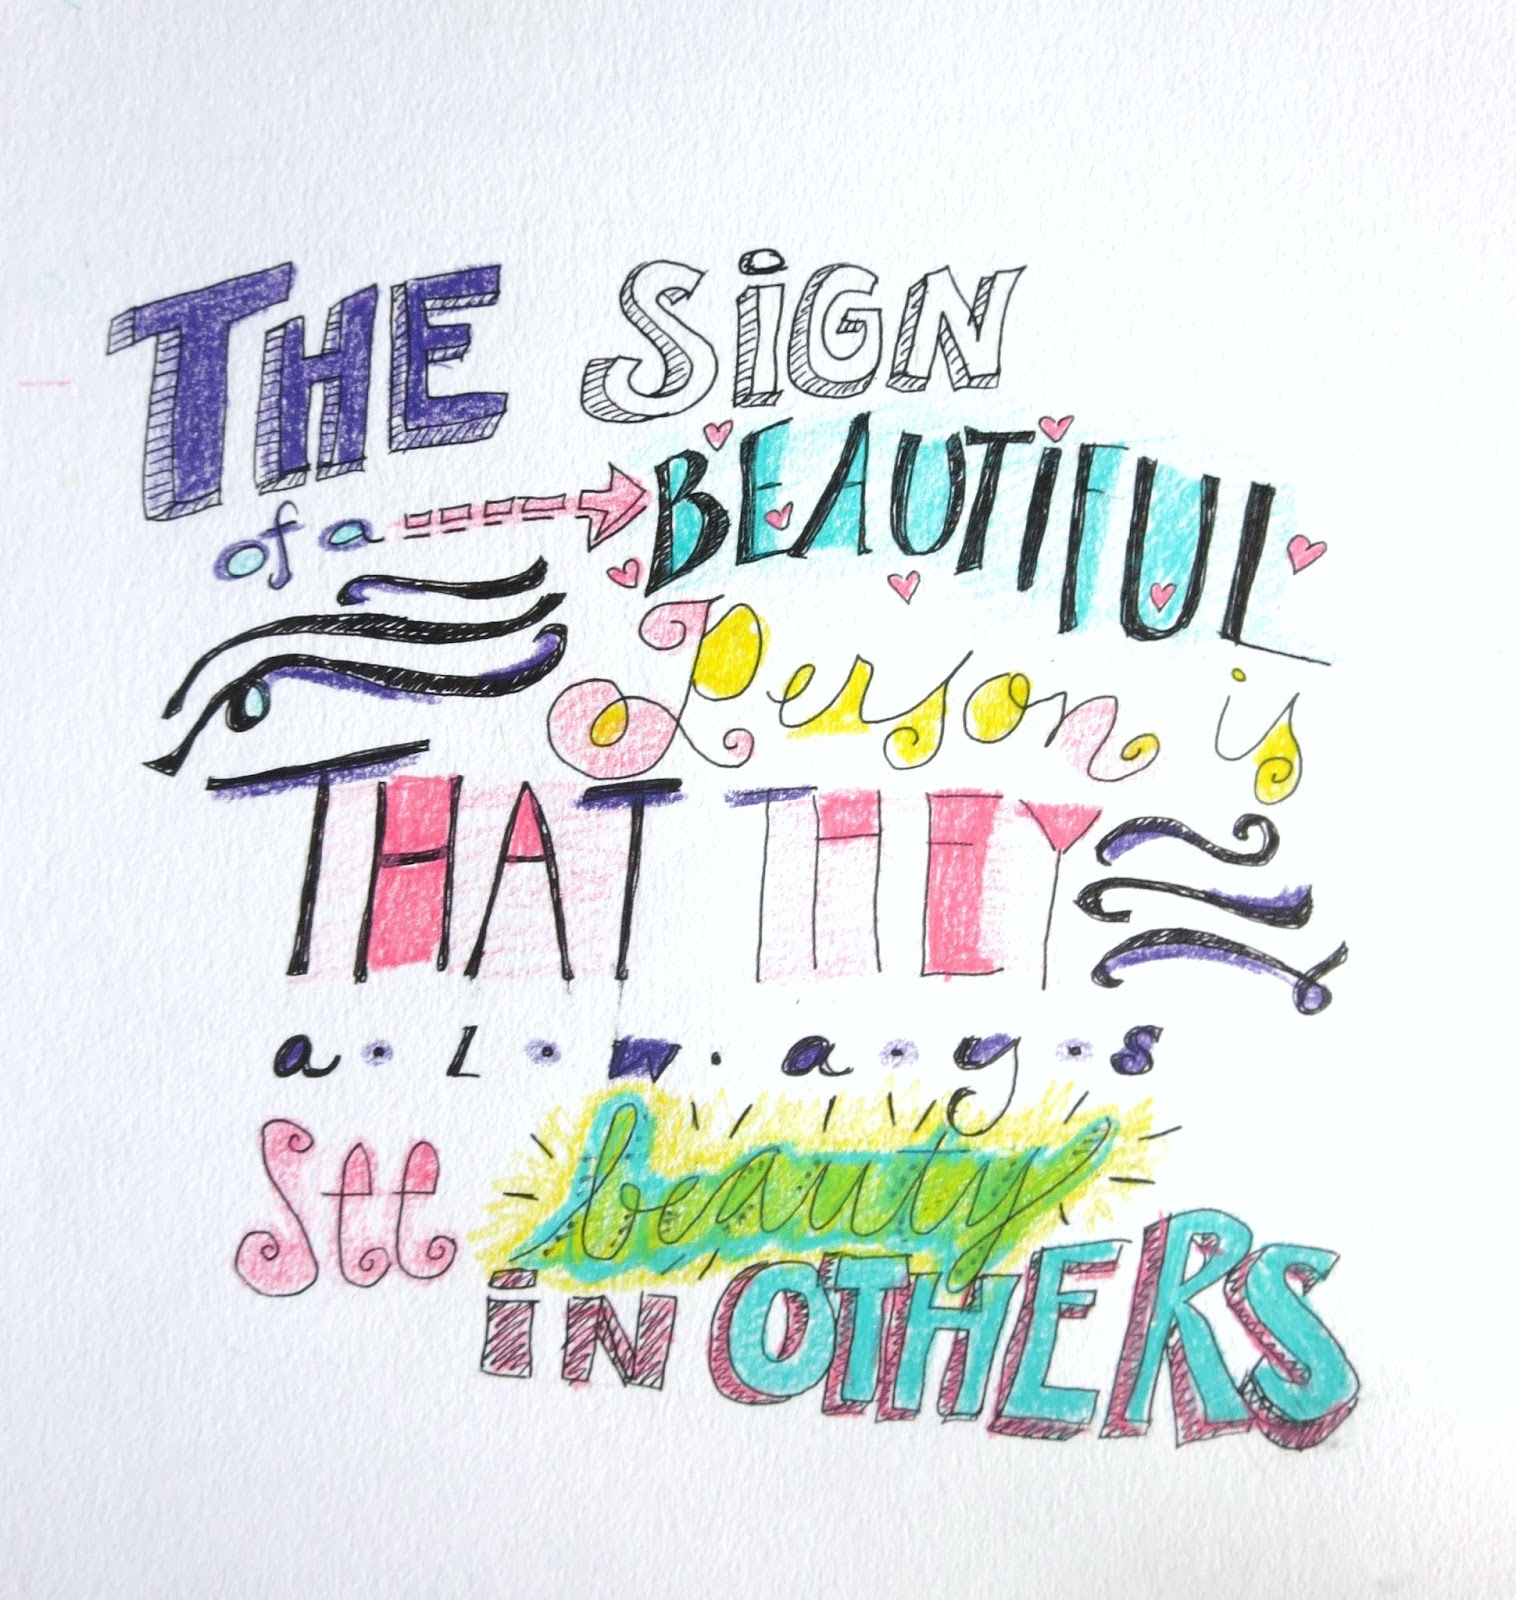 THE SiGN
of a BEAUTIFUL
Person is
THAT THEY
a·l·w·a·y·s
See beauty
iN OTHERS